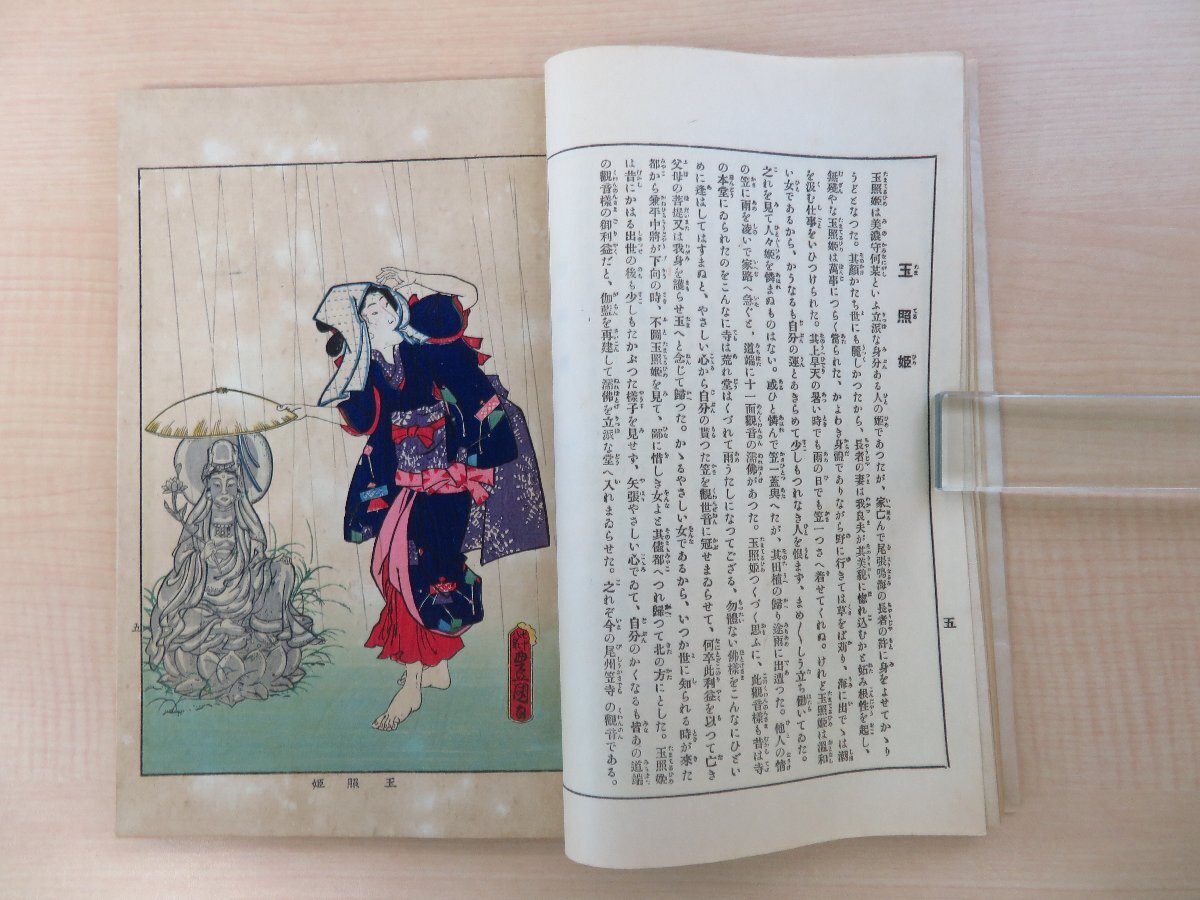 玉照姫
玉照姫は美濃守何某といふ立派な身分ある人の姫であつたが、家亡んで尾張鳴海の長者の許に身をよせてかゝり
うどとなつた。其顔かたち世にも麗しかつたから、長者の妻は我良夫が其美貌に惚れ込むかと妬み根性を起し、
無殘やな玉照姫は萬事につらく當られた、かよわき身體でありながら野に行きては草をば苅り、海に出でゝは潮
を汲む仕事をいひつけられた。其上旱天の暑い時でも雨の日でも笠一つさへ着せてくれぬ。けれど玉照姫は溫和
い女であるから、かうなるも自分の運とあきらめて少しもつれなき人を恨まず、まめ〳〵しう立ち働いてゐた。
之れを見て人々姫を憐まぬものはない。或ひと憐んで笠一蓋與へたが、其田植の歸り途雨に出遭つた。他人の情
の笠に雨を凌いで家路へ急ぐと、道端に十一面觀音の濡佛があつた。玉照姫つくづく思ふに、此觀音樣も昔は寺
の本堂にゐられたのをこんなに寺は荒れ堂はくづれて雨うたしになつてござる、勿體ない佛樣をこんなにひどい
めに逢はしてはすまぬと、やさしい心から自分の貰つた笠を觀世音に冠せまゐらせて、何卒此利益を以つて亡き
父母の菩提又は我身を護らせ玉へと念じて歸つた。かゝるやさしい女であるから、いつか世に知られる時が來た
都から兼平中將が下向の時、不圖玉照姫を見て、鄙に惜しき女よと其儘都へつれ歸つて北の方にとした。玉照姫
は昔にかはる出世の後も少しもたかぶつた樣子を見せず、矢張やさしい心でゐて、自分のかくなるも皆あの道端
の觀音樣の御利益だと、伽藍を再建して濡佛を立派な堂へ入れまゐらせた。之れぞ今の尾州笠寺の觀音である。
五
豊国画
玉照姫
五